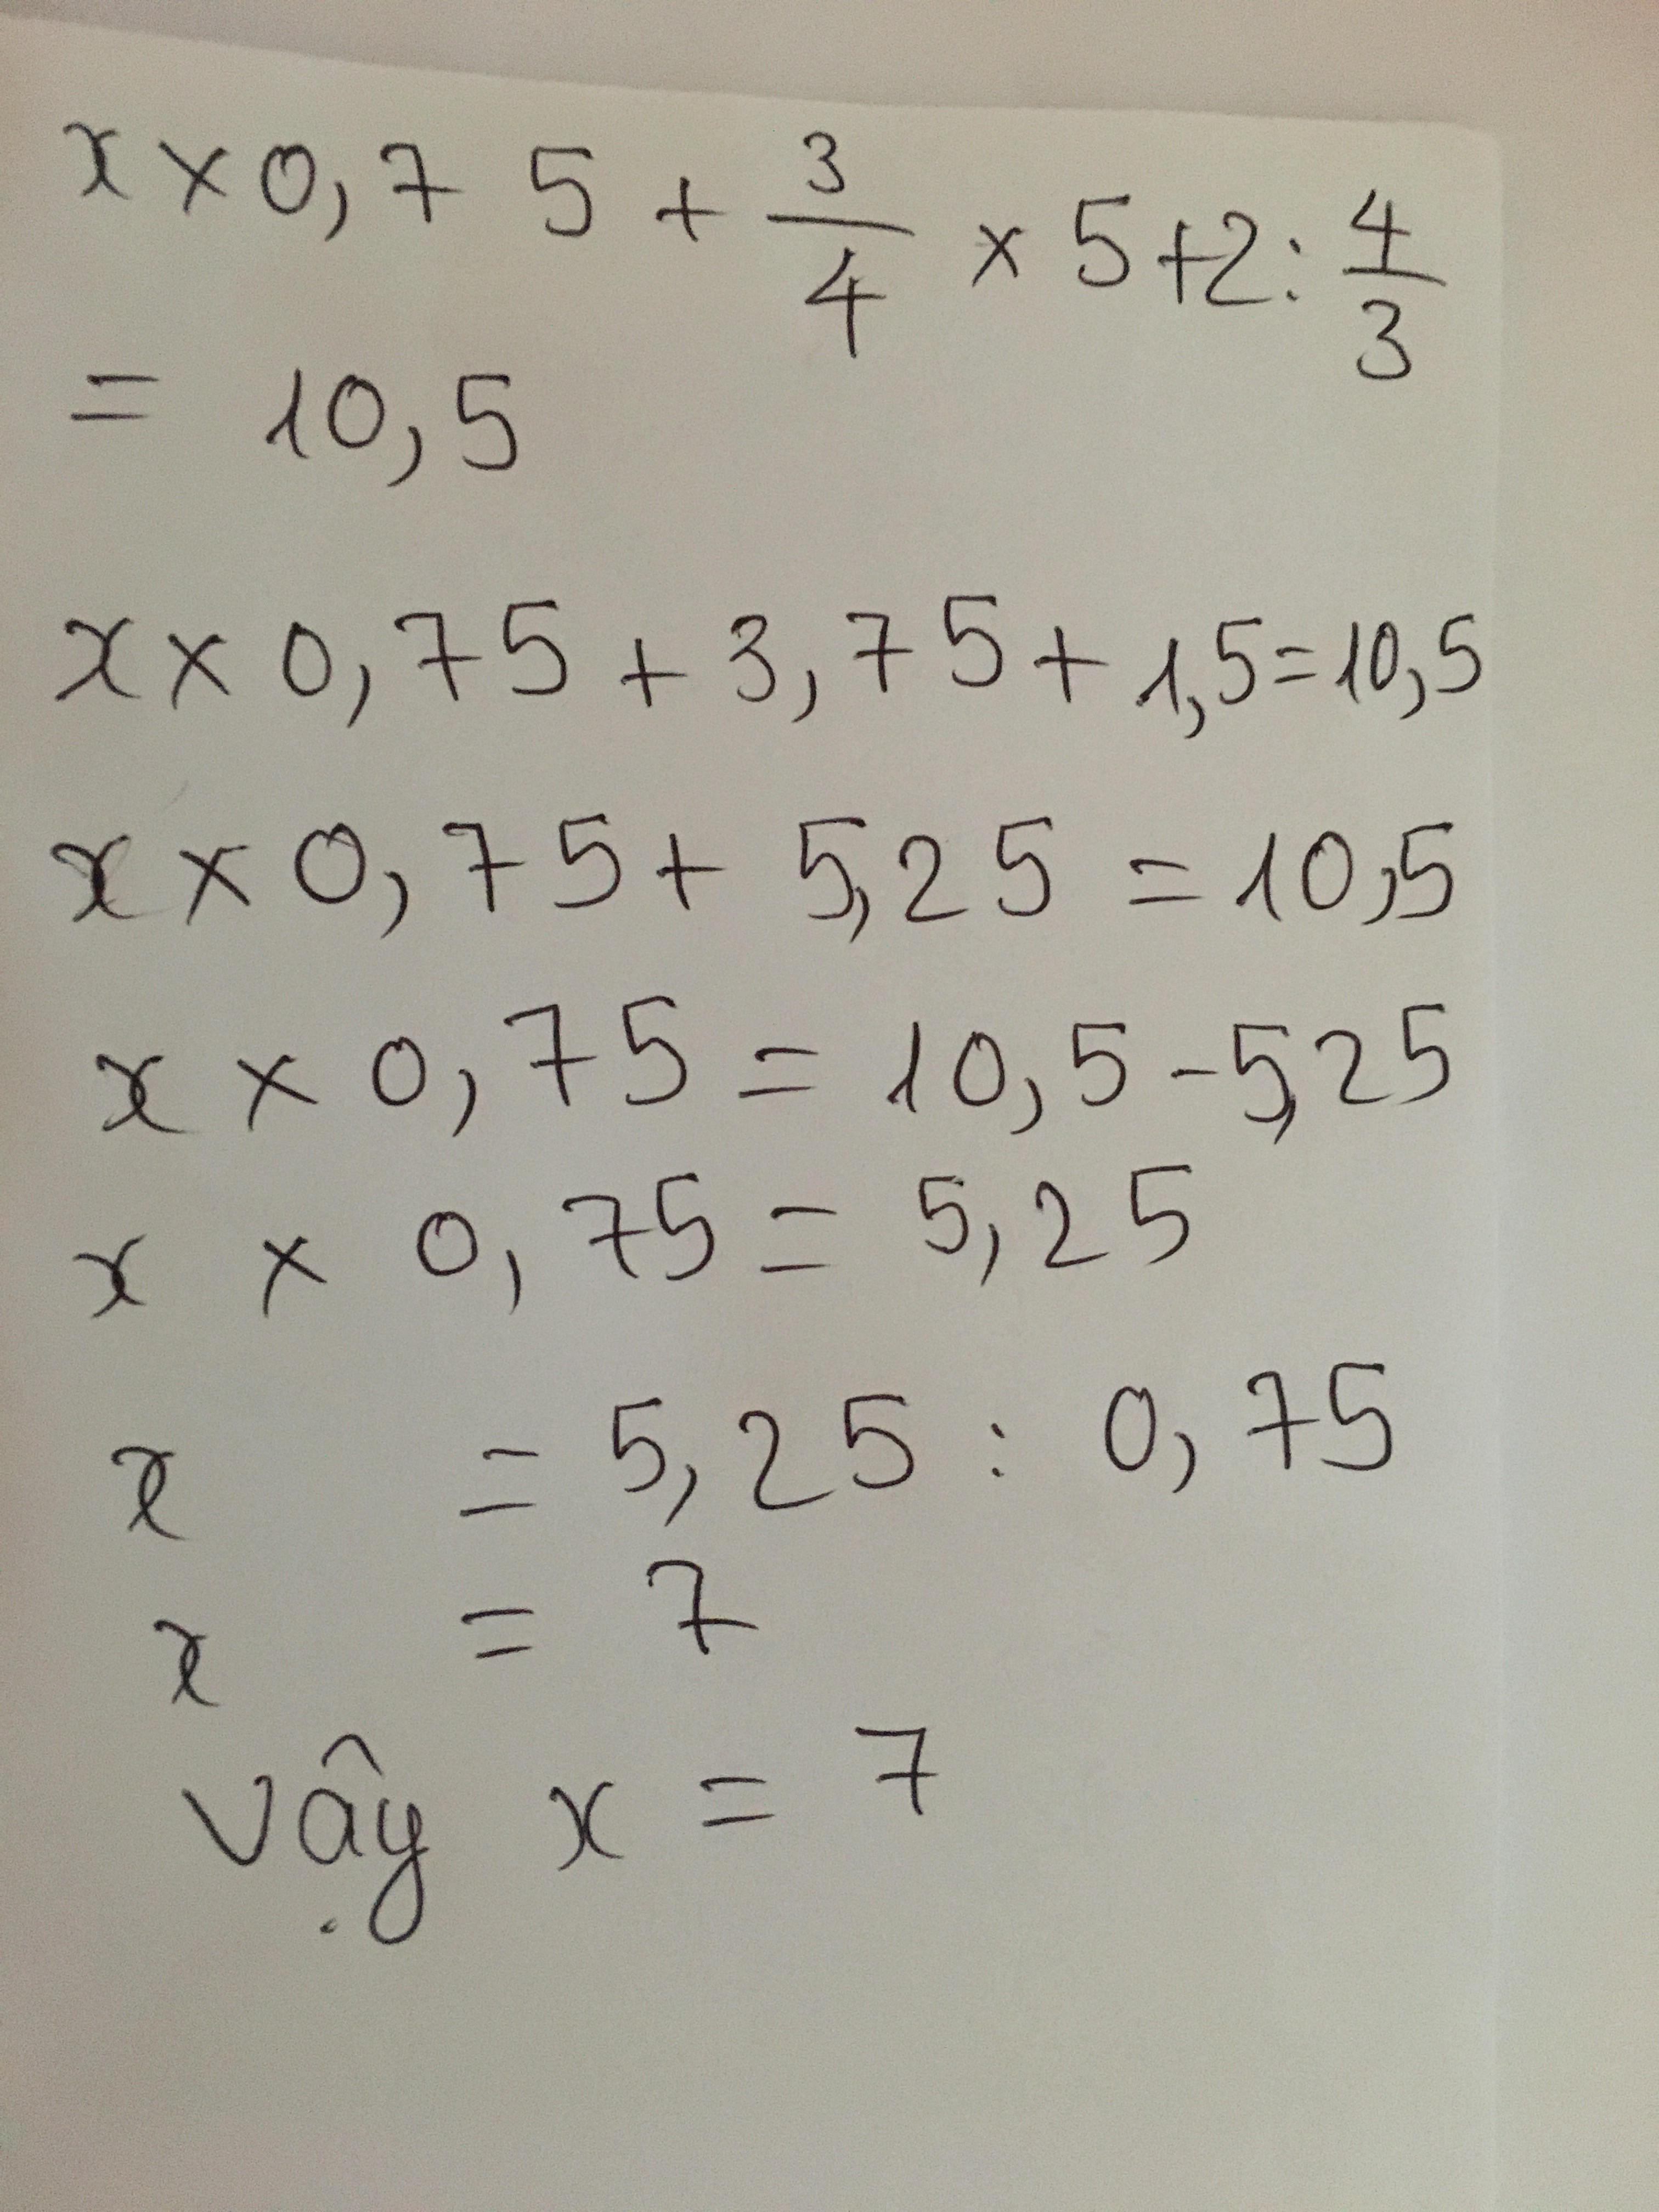 x × 0,75 + 3/4 × 5 + 2 : 4/3
= 10,5
x × 0,75 + 3,75 + 1,5 = 10,5
x × 0,75 + 5,25 = 10,5
x × 0,75 = 10,5 - 5,25
x × 0,75 = 5,25
x = 5,25 : 0,75
x = 7
Vậy x = 7